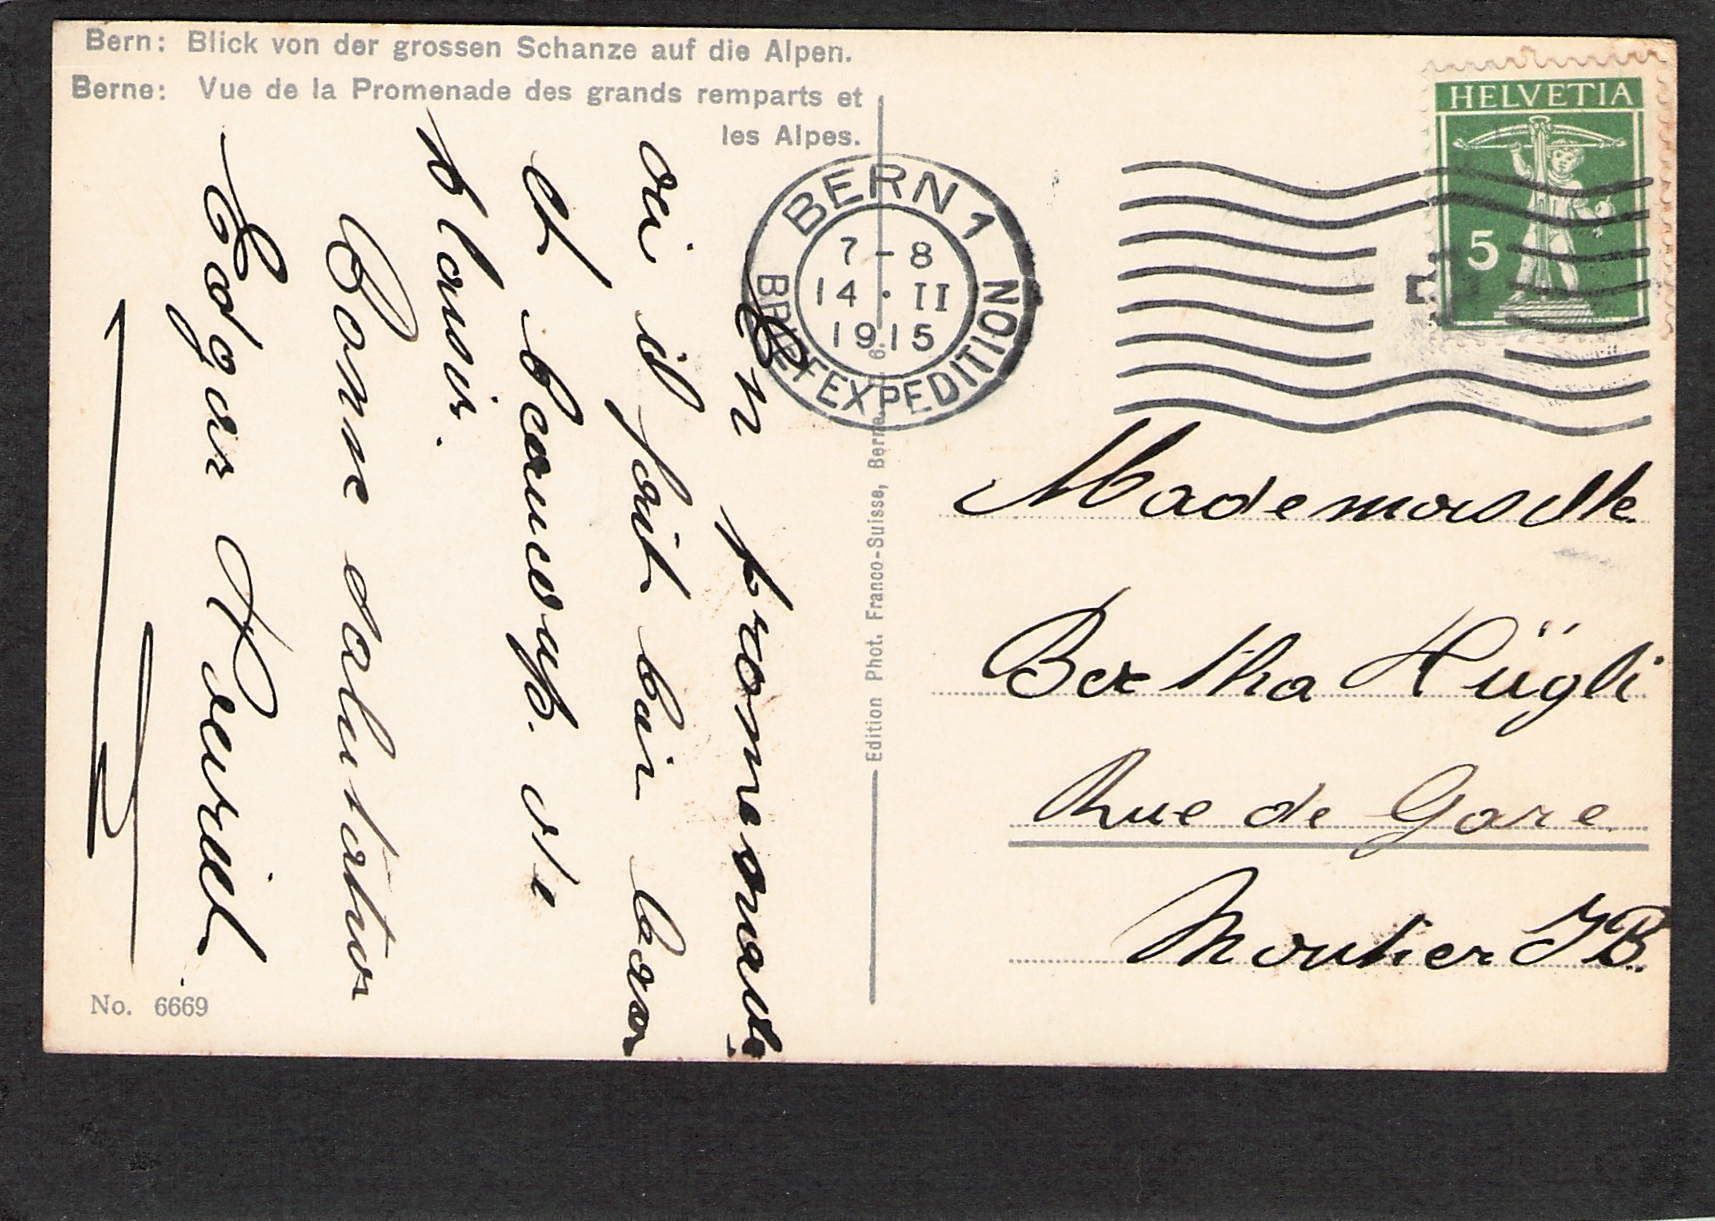 Bern: Blick von der grossen Schanze auf die Alpen.
Berne: Vue de la Promenade des grands remparts et
les Alpes.
HELVETIA
5
BERN 1
7-8
14.II
1915
BRIEFEXPEDITION
En promenade
oui il fait bien beau
et beaucoup de
plaisir.
Bonne salutation
Edgar
Mademoiselle
Bertha Hügli
Rue de Gare
Moutier JB.
Edition Phot. Franco-Suisse, Berne
No. 6669